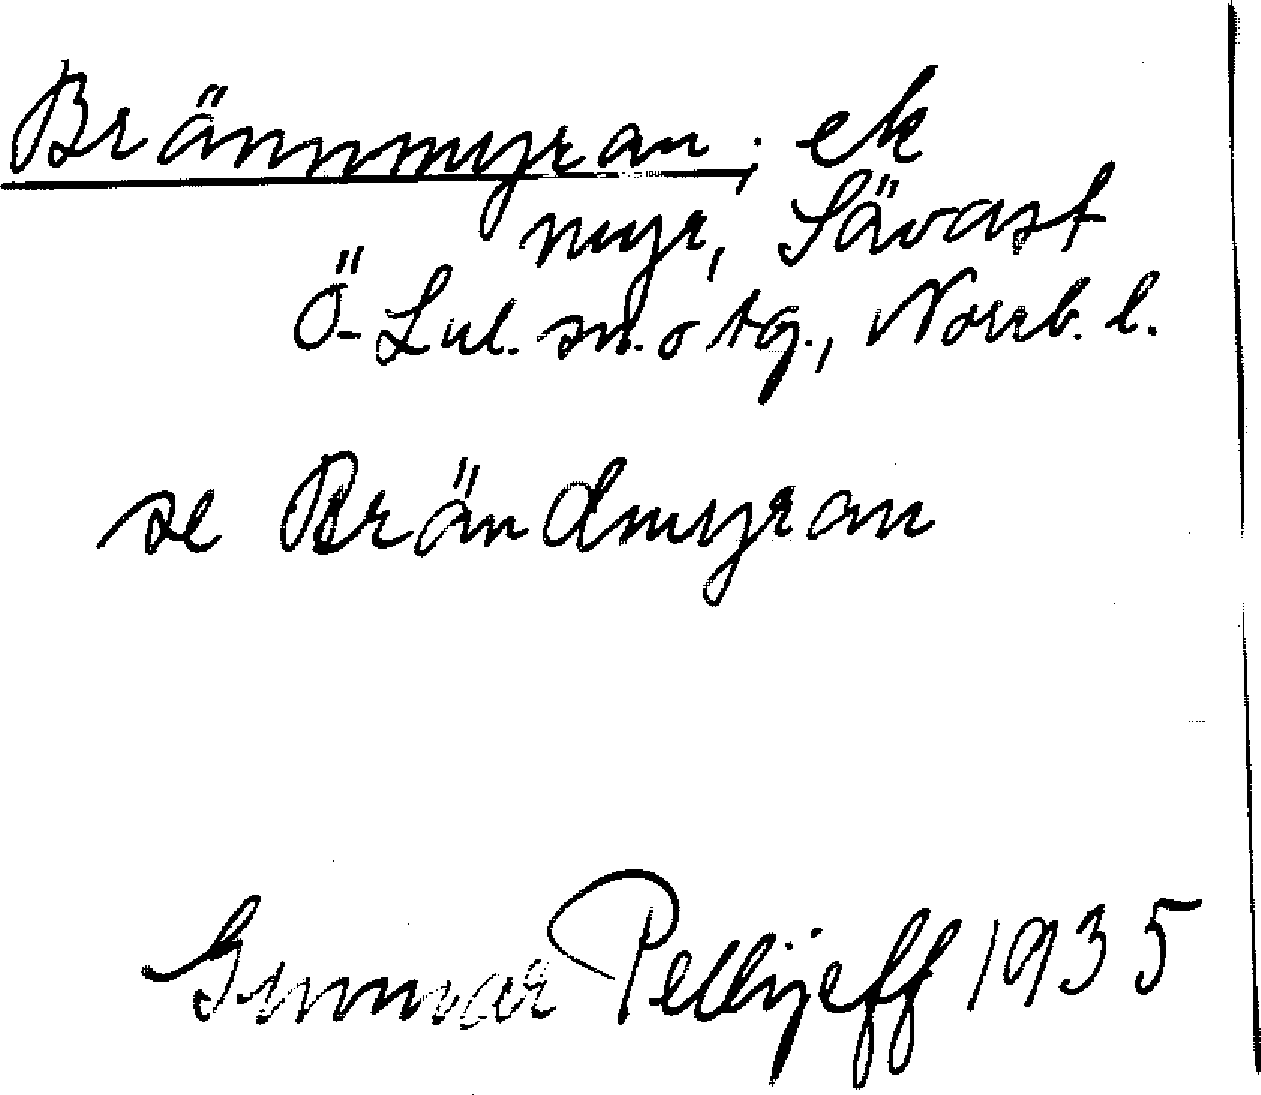 Brännmyran; ek
myr, Sävast
Ö-Lul. sn. o tg., Norrb. l.
se Brändmyran
Gunnar Pellijeff 1935